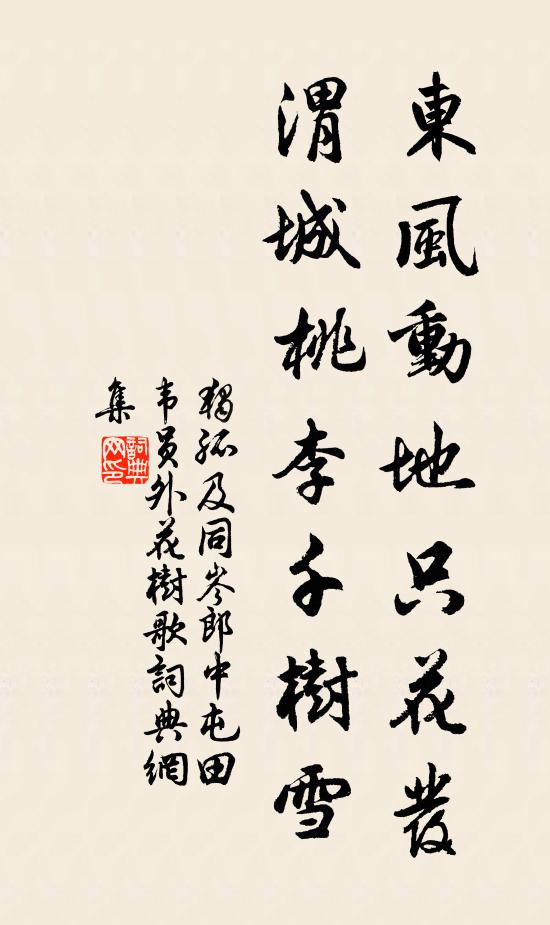 東風動地只花發
渭城桃李千樹雪
獨孤及同岑郎中屯田
韦員外花樹歌詞典網
集
詞典
网印